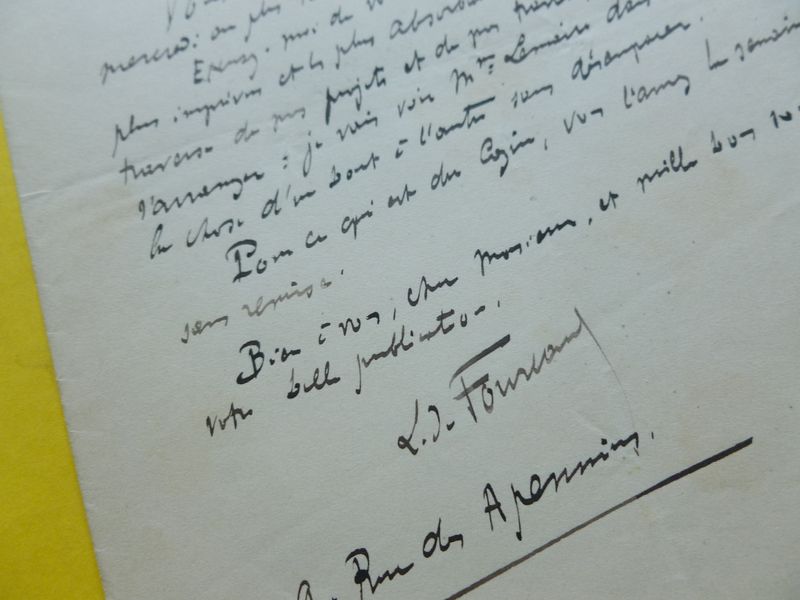 mercredi ou plus
Epuisez-moi de
plus imprévus et les plus absorbants
traverse de mes projets et de mes travaux
s'arranger : je vais voir Mme Lemaire dans
la chose d'un bout à l'autre sans désemparer.
Pour ce qui est du Cazin, vous l'aurez la semaine
sans remise.
Bien à vous, cher Monsieur, et mille bons
votre belle publication.
L. de Fourcaud
Rue des Apennins.